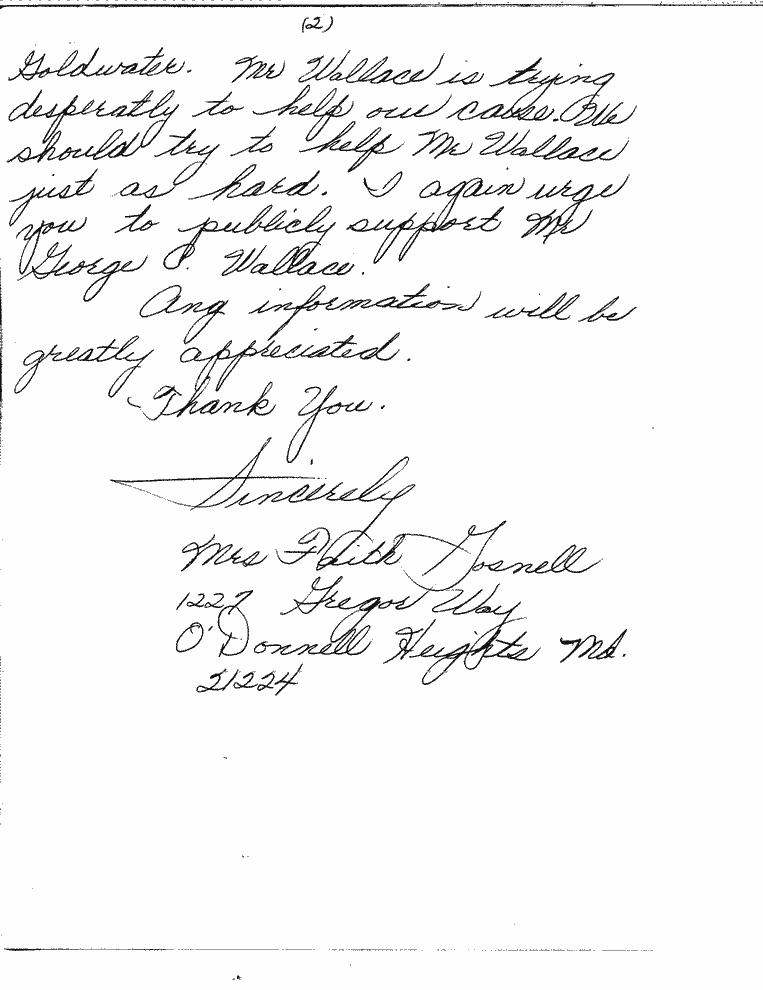 (2)
Goldwater. Mr Wallace is trying
desperatly to help our cause. We
should try to help Mr Wallace
just as hard. I again urge
you to publicly support Mr
George C. Wallace.
Any information will be
greatly appreciated.
Thank You.
Sincerely
Mrs Faith Gosnell
1227 Gregor Way
O'Donnell Heights Md.
21224